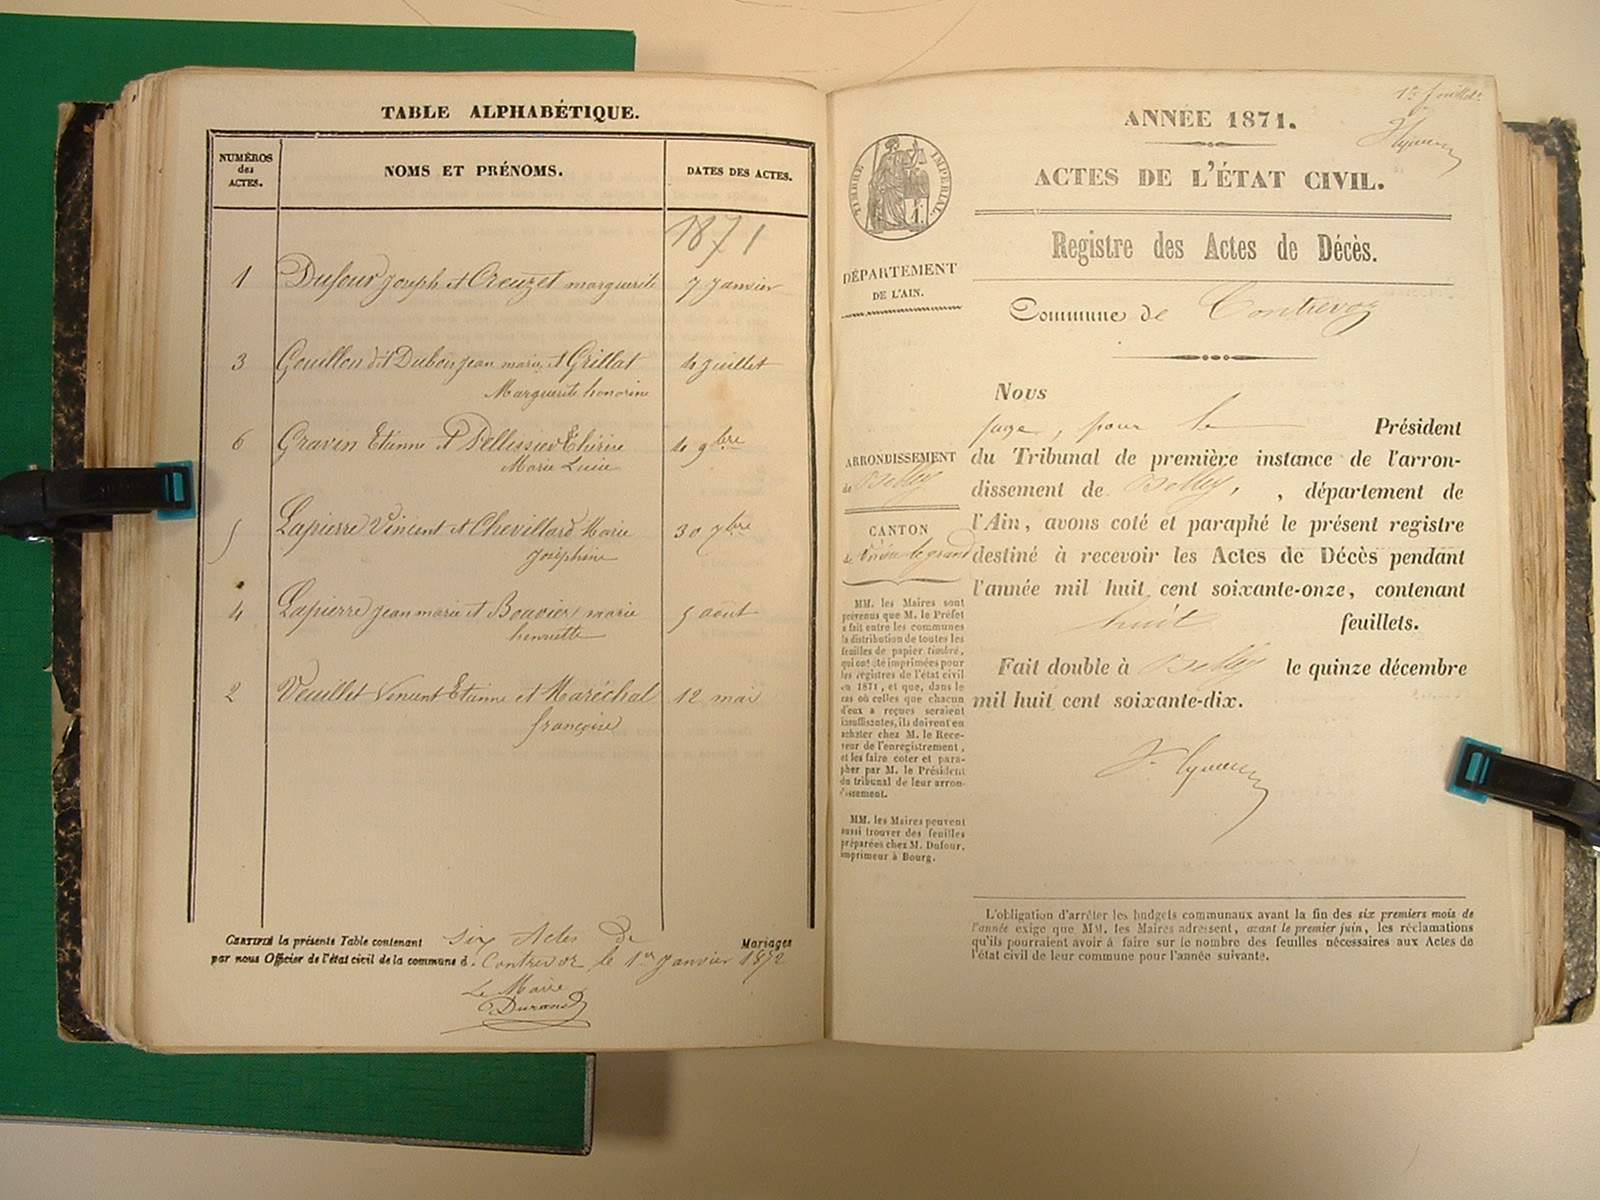 TABLE ALPHABÉTIQUE.
NUMÉROS des ACTES.
NOMS ET PRÉNOMS.
DATES DES ACTES.
1871
1 Dufour Joseph et Creuzet marguerite 7 Janvier
3 Gouillon dit Dubou Jean marie et Grillat 10 juillet
Marguerite honorine
6 Gravin Etienne et Pellissier Thérèse 10 9bre
Marie Lucie
5 Lapierre Vincent et Chevillard Marie 30 7bre
Joséphine
4 Lapierre Jean marie et Bouvier marie 5 août
henriette
2 Veuillet Vincent Etienne et Maréchal 12 mai
françoise
CERTIFIÉ la présente Table contenant six Actes de Mariages
par nous Officier de l'état civil de la commune d. Contrevoz le 1er Janvier 1872
Le Maire
Durand
1er feuillet
ANNÉE 1871.
ACTES DE L'ÉTAT CIVIL.
TIMBRE IMPÉRIAL.
Registre des Actes de Décès.
DÉPARTEMENT
DE L'AIN.
Commune de Contrevoz
Nous
juge, pour le Président
du Tribunal de première instance de l'arron-
dissement de Belley, , département de
l'Ain, avons coté et paraphé le présent registre
destiné à recevoir les Actes de Décès pendant
l'année mil huit cent soixante-onze, contenant
huit feuillets.
Fait double à Belley le quinze décembre
mil huit cent soixante-dix.
ARRONDISSEMENT
de Belley
CANTON
de Virieu le grand
MM. les Maires sont
prévenus que M. le Préfet
a fait entre les communes
la distribution de toutes les
feuilles de papier timbré,
qui ont été imprimées pour
les registres de l'état civil
en 1871, et que, dans le
cas où celles que chacun
d'eux a reçues seraient
insuffisantes, ils doivent en
acheter chez M. le Rece-
veur de l'enregistrement,
et les faire coter et para-
pher par M. le Président
du tribunal de leur arron-
dissement.
MM. les Maires peuvent
aussi trouver des feuilles
préparées chez M. Dufour,
imprimeur à Bourg.
L'obligation d'arrêter les budgets communaux avant la fin des six premiers mois de
l'année exige que MM. les Maires adressent, avant le premier juin, les réclamations
qu'ils pourraient avoir à faire sur le nombre des feuilles nécessaires aux Actes de
l'état civil de leur commune pour l'année suivante.